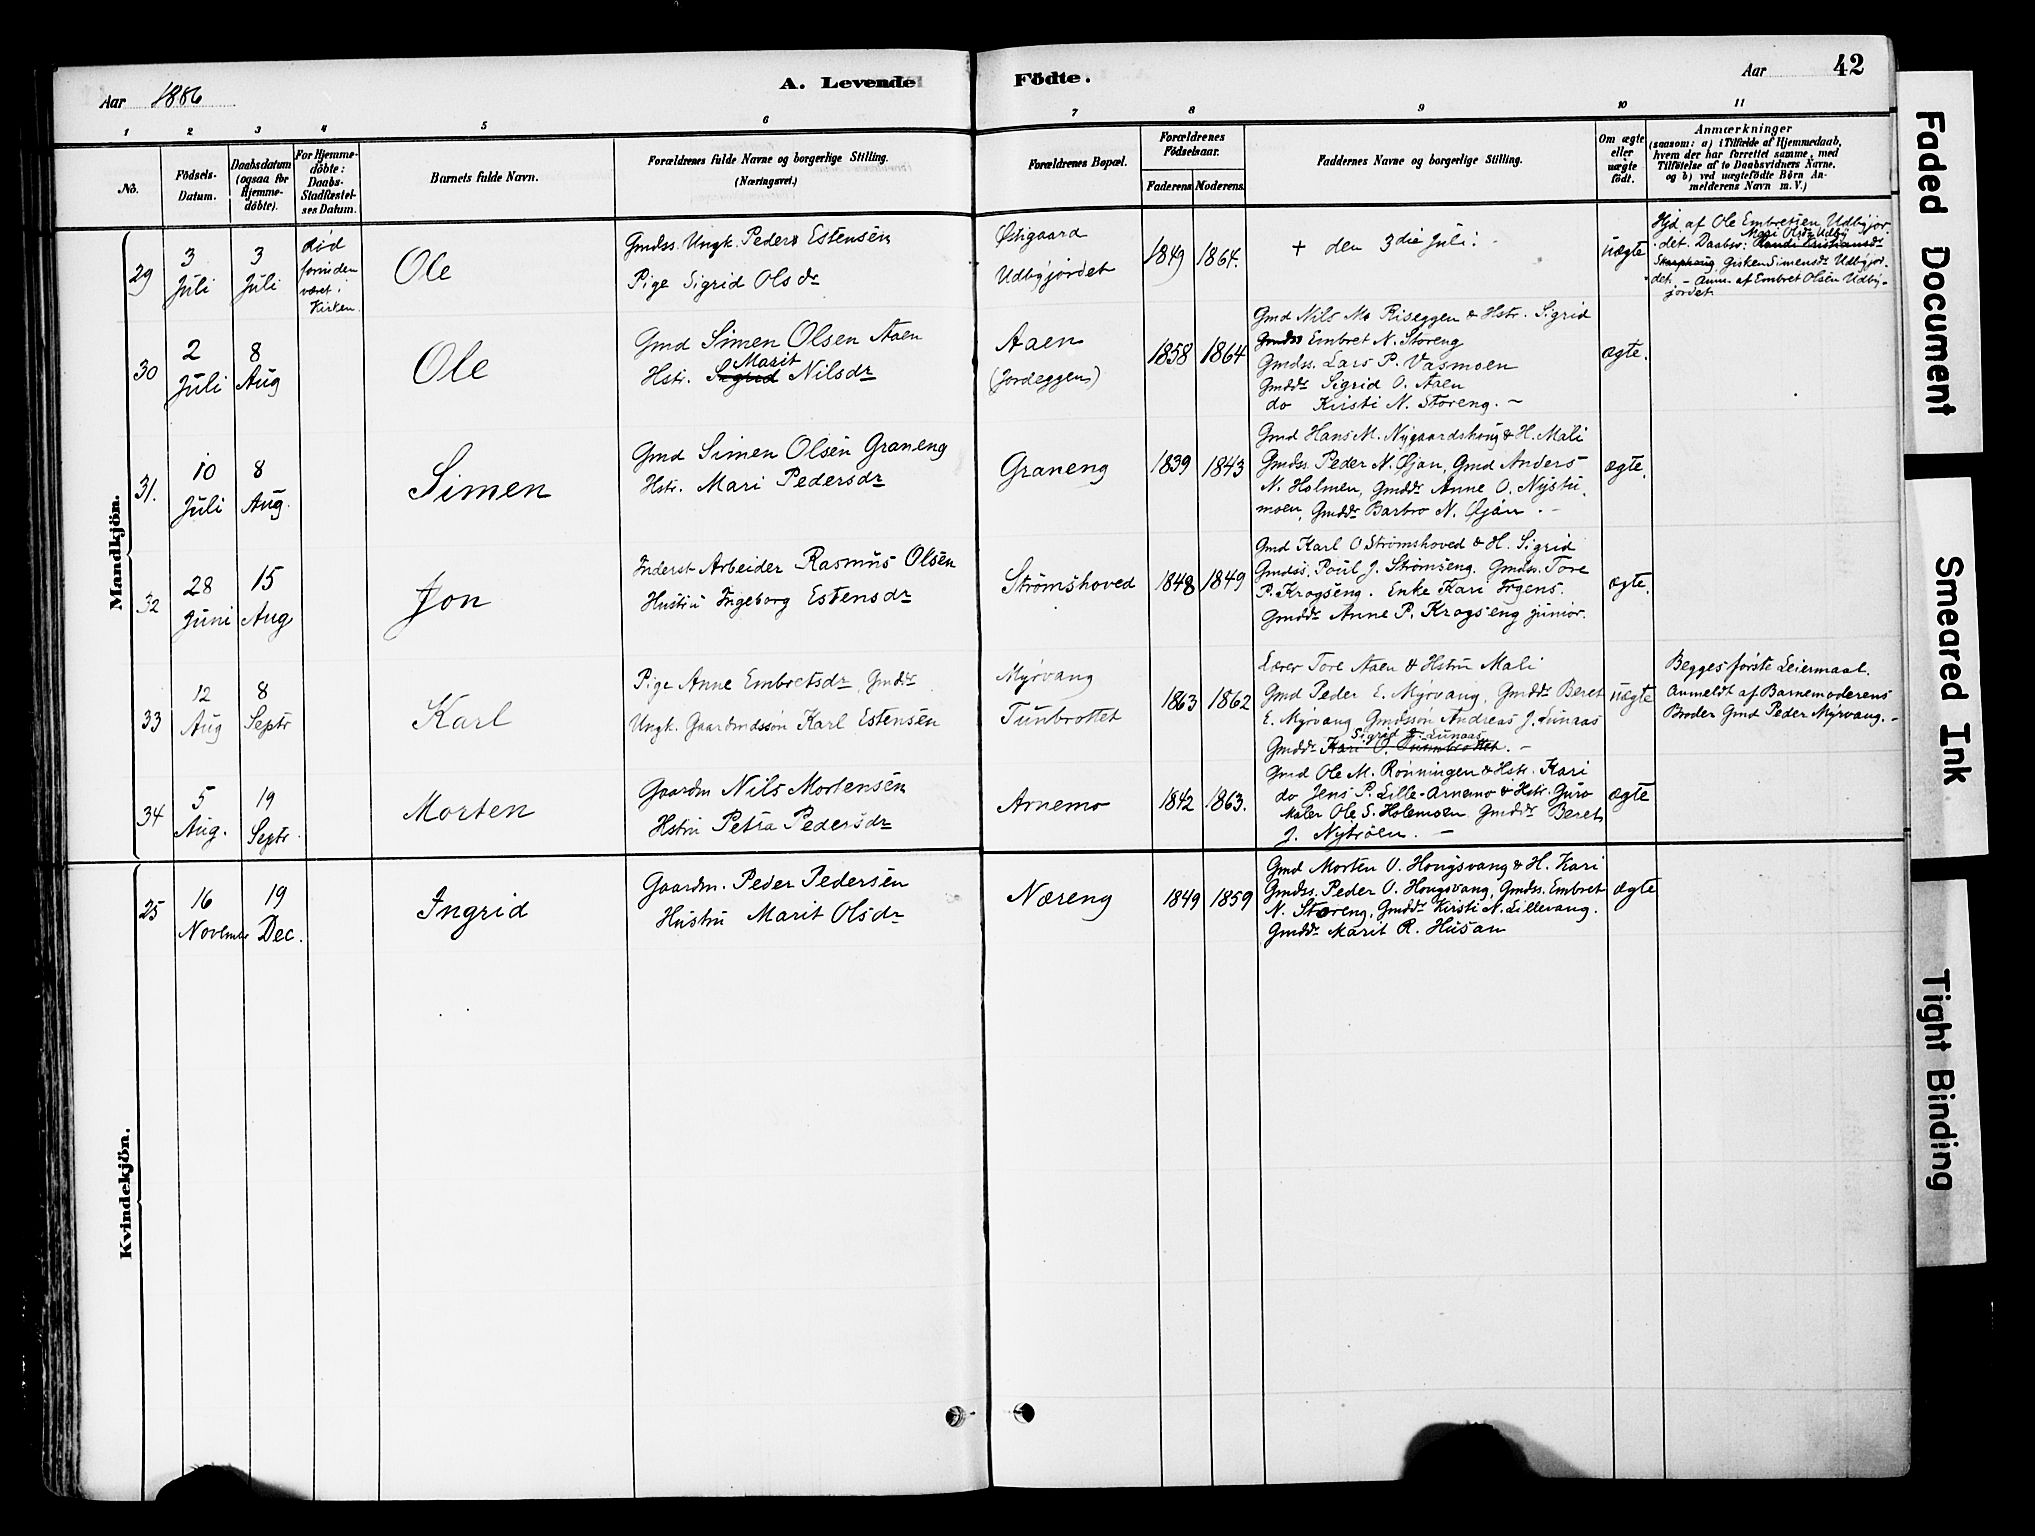 Aar 1886
A. Levende Födte.
Aar 42
1 2 3 4 5 6 7 8 9 10 11
No.
Födsels-
Datum.
Daabsdatum
(ogsaa for
Hjemme-
döbte).
For Hjemme-
döbte:
Daabs-
Stadfæstel-
ses Datum.
Barnets fulde Navn.
Forældrenes fulde Navne og borgerlige Stilling.
(Næringsvei.)
Forældrenes Bopæl.
Forældrenes
Födselsaar.
Faderens Moderens.
Faddernes Navne og borgerlige Stilling.
Om ægte
eller
uægte
födt.
Anmærkninger
(saasom: a) i Tilfælde af Hjemmedaab,
hvem der har forrettet samme, med
Tilföielse af to Daabsvidners Navne,
og b) ved uægtefödte Börn An-
melderens Navn m. V.)
Mandkjön.
29
3
Juli
3
Juli
död
forinden
været i
Kirken.
Ole
Gmdss. Ungk. Peder Estensen
Pige Sigrid Olsdr
Østigaard
Udbyjordet
1849 1864.
+ den 3die Juli.
uægte
Hjd af Ole Embretsen Udbyjor-
Mari Olsdr Udby
det. Daabsv:
Gisken Simensdr Udbyjor-
det. - Anm. af Embret Olsen Udby-
jordet.
30
2
Juli
8
Aug
Ole
Gmd Simen Olsen Aaen
Marit
Hstr. Sigrid Nilsdr
Aaen
(Jordeggen)
1858 1864
Gmd Nils M. Riseggen & Hstr. Sigrid
Gmdss Embret N. Storeng
Gmdss. Lars P. Vasmoen
Gmddr Sigrid O. Aaen
do Kirsti N. Storeng. -
ægte.
31.
10
Juli
8
Aug.
Simen
Gmd Simen Olsen Graneng
Hstr. Mari Pedersdr
Graneng
1839 1843
Gmd Hans M. Nygaardshoug & H. Mali
Gmdss. Peder N. Øjan, Gmd Anders
N. Holmen, Gmddr Anne O. Nystu-
moen, Gmddr Barbro N. Øjan. -
ægte.
32
28
Juni
15
Aug
Jon
Inderst Arbeider Rasmus Olsen
Hustru Ingeborg Estensdr
Strømshoved
1848 1849
Gmd Karl O Strømshoved & H. Sigrid
Gmdss. Poul J. Strømseng. Gmdss. Tore
P. Krogseng. Enke Kari Trgens.
Gmddr Anne P. Krogseng junior.
ægte.
33
12
Aug
8
Septr
Karl
Pige Anne Embretsdr Gmddr
Ungk. Gaardmdssøn Karl Estensen
Myrvang
Tunbrottet
1863 1862
Lærer Tore Aaen & Hstru Mali
Gmd Peder E. Myrvang, Gmddr Beret
E. Myrvang Gmdssøn Andreas J. Lunaas
Sigrid J. Lunaas
Gmddr Kari O. Tunnbrottet. -
uægte
Begges første Leiermaal.
Anmeldt af Barnemoderens
Broder Gmd Peder Myrvang. -
34
5
Aug.
19
Septr.
Morten
Gaardm Nils Mortensen
Hstru Petra Pedersdr
Arnemo
1842 1863.
Gmd Ole M. Rønningen & Hstr. Kari
do Jens P. Lille-Arnemo & Hstr. Guro
Maler Ole S. Holemoen Gmddr Beret
J. Nytrøen. -
ægte
Kvindekjön.
25
16
November
19
Dec.
Ingrid
Gaardm. Peder Pedersen
Hustru Marit Olsdr
Næreng
1849 1859
Gmd Morten O. Hougsvang & H. Kari
Gmdss. Peder O. Hougsvang, Gmdss. Embret
N. Storeng, Gmddr Kirsti N. Lillevang.
Gmddr Marit R. Husan
ægte
Faded Document
Smeared Ink
Tight Binding